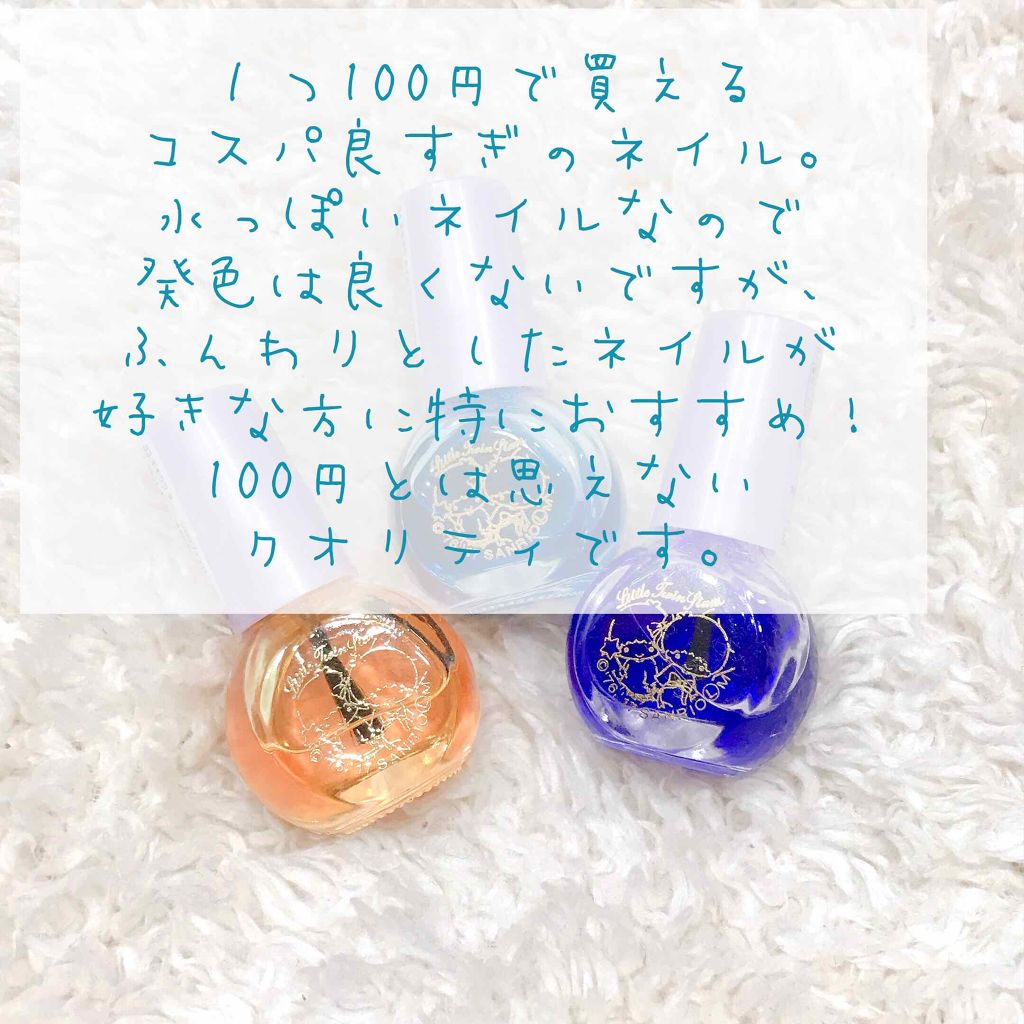 1つ100円で買える
コスパ良すぎのネイル。
水っぽいネイルなので
発色は良くないですが、
ふんわりとしたネイルが
好きな方に特におすすめ！
100円とは思えない
クオリティです。
Little Twin Stars
SANRIO
Little Twin Stars
SANRIO
Little Twin Stars
©'76,
SANRIO